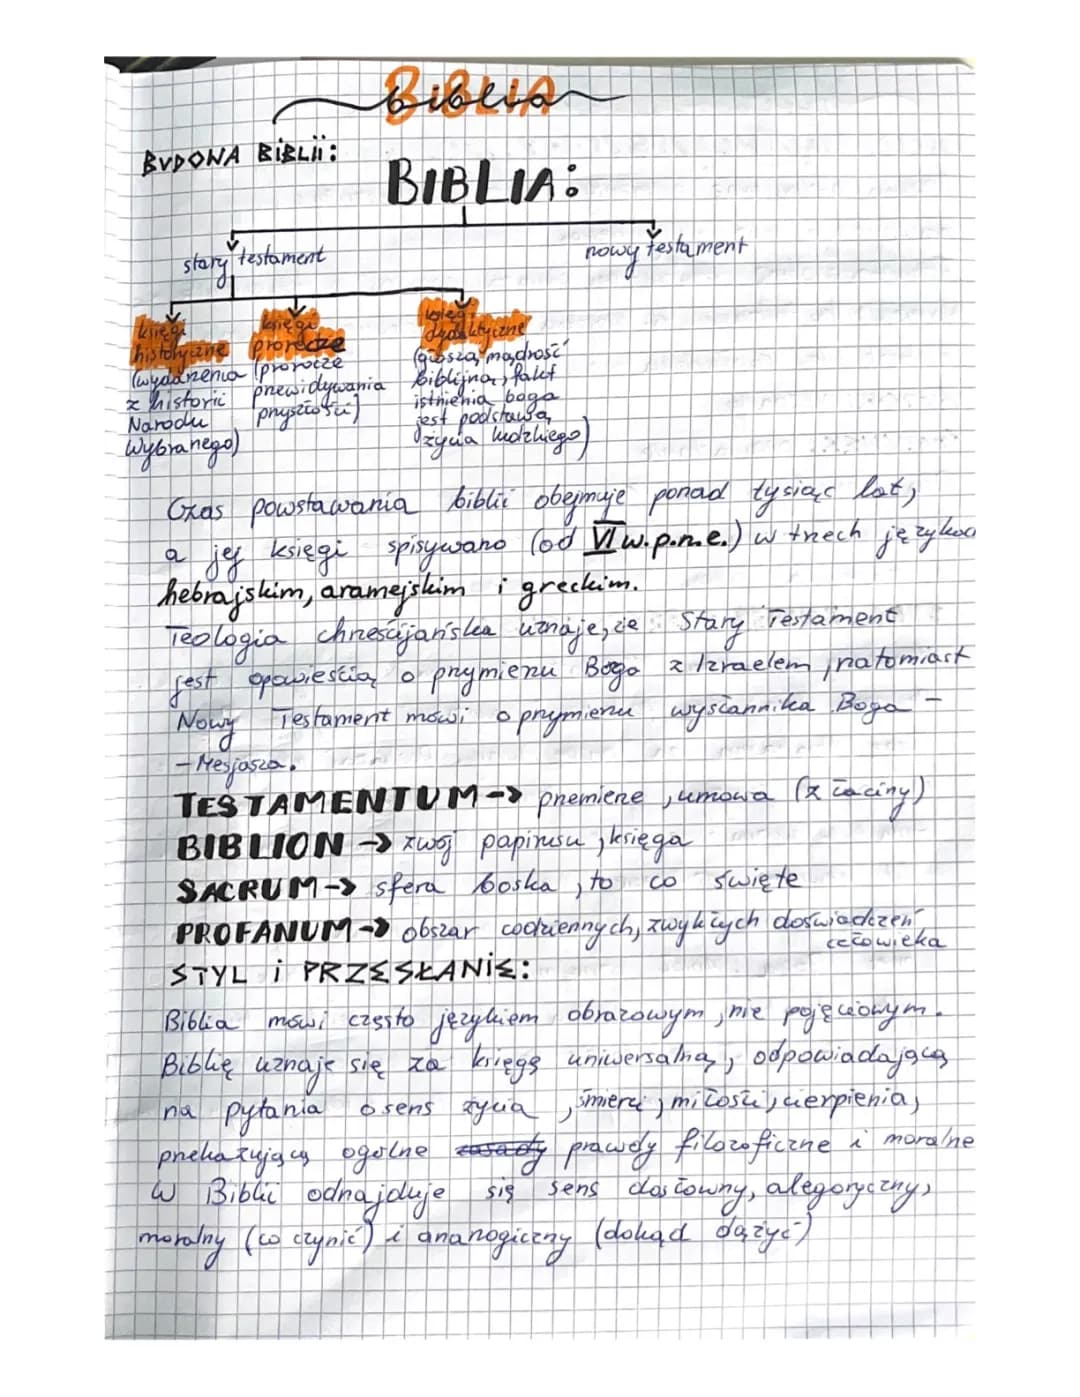 BIBLIA
biblia
BUDOWA BIBLII:
BIBLIA:
stary testament
nowy testament
księgi
historyczne
(wydarzenia
z historii
Narodu
Wybranego)
księgi
prorocze
(prorocze
przewidywania
przyszłości)
księgi
dydaktyczne
(głoszą mądrość
biblijną, fakt
istnienia boga
jest podstawą
życia ludzkiego)
Czas powstawania biblii obejmuje ponad tysiąc lat,
a jej księgi spisywano (od VI w.p.n.e.) w trzech językach
hebrajskim, aramejskim i greckim.
Teologia chrześcijańska uznaje, że Stary Testament
jest opowieścią o przymierzu Boga z Izraelem, natomiast
Nowy Testament mówi o przymierzu wysłannika Boga -
- Mesjasza.
TESTAMENTUM -> przemierze, umowa (z łaciny)
BIBLION -> zwój papirusu, księga
SACRUM -> sfera boska, to co święte
PROFANUM -> obszar codziennych, zwykłych doświadczeń
człowieka
STYL i PRZESŁANIE:
Biblia mówi często językiem obrazowym, nie pojęciowym.
Biblię uznaje się za księgę uniwersalną, odpowiadającą
na pytania o sens życia, śmierci, miłości, cierpienia,
przekazującą ogólne zasady prawdy filozoficzne i moralne
W Biblii odnajduje się sens dosłowny, alegoryczny,
moralny (co czynić) i ananogiczny (dokąd dążyć)